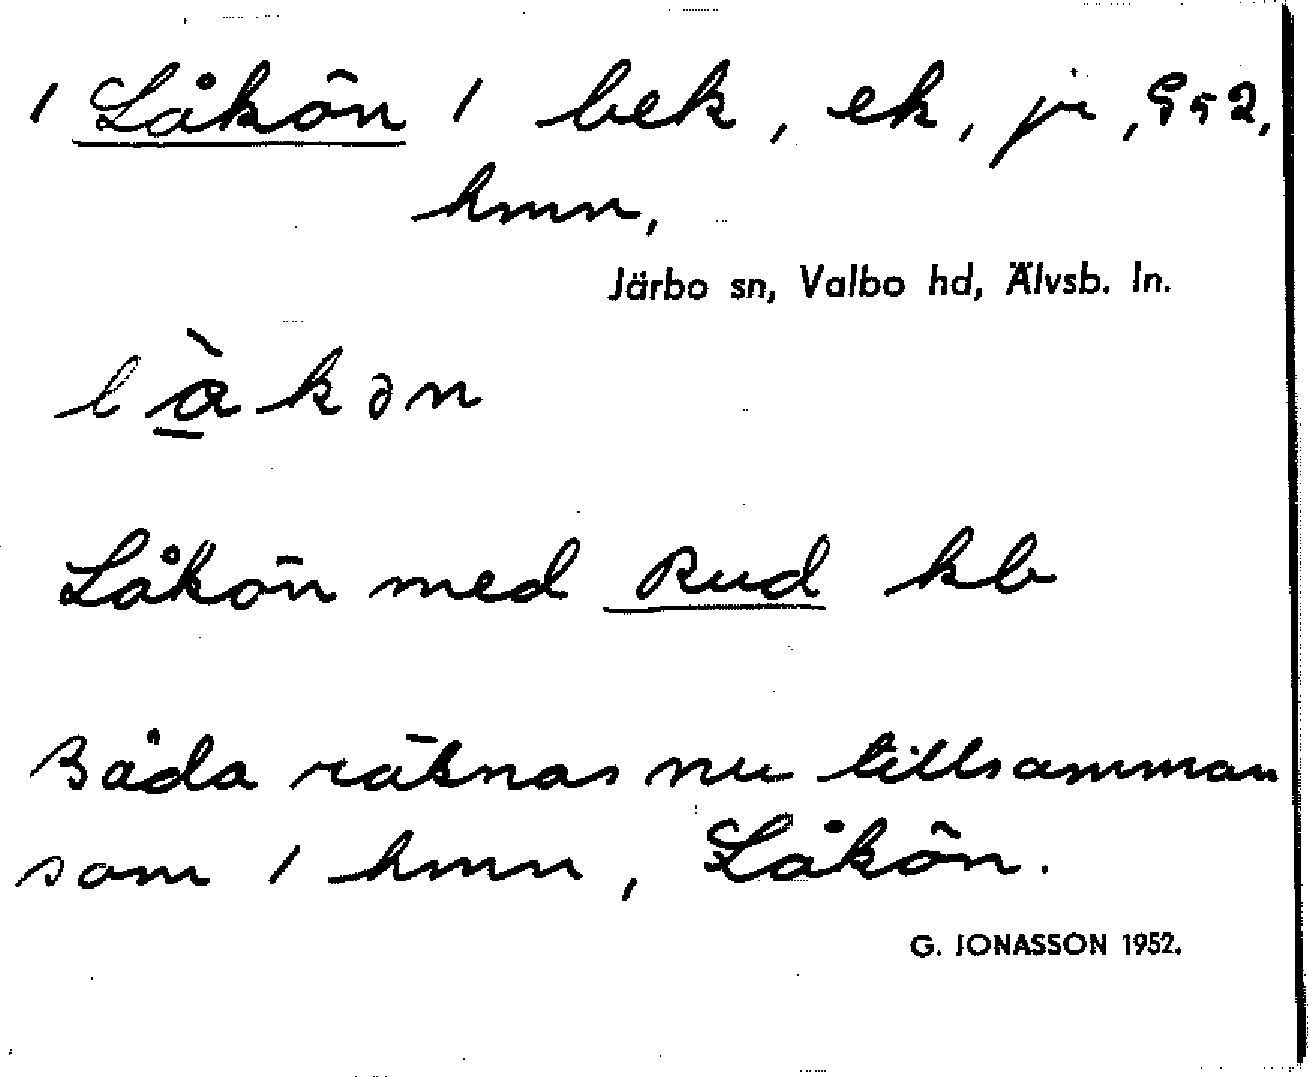 1 Låkön 1 bek, ek, jr, G52,
hmn,
Järbo sn, Valbo hd, Älvsb. ln.
l à k ə n
Låkön med Rud kb
Båda räknas nu tillsamman
som 1 hmn, Låkön.
G. JONASSON 1952.